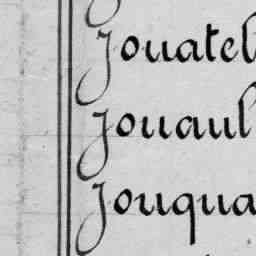 Jouatel
Jouaul
Jouqua